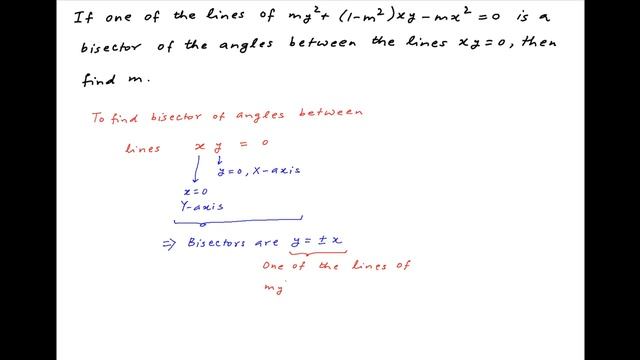 If one of the lines of my² + (1-m²)xy - mx² = 0 is a
bisector of the angles between the lines xy = 0, then
find m.
To find bisector of angles between
lines x y = 0
y = 0, X-axis
x = 0
Y-axis
⇒ Bisectors are y = ± x
One of the lines of
my